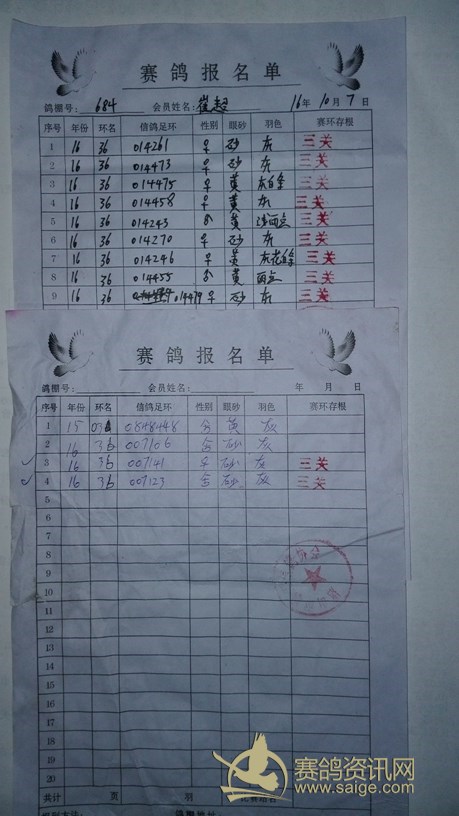 赛鸽报名单
鸽棚号: 684 会员姓名: 崔超 16年10月7日
序号 年份 环名 信鸽足环 性别 眼砂 羽色 赛环存根
1 16 36 014261 ♀ 砂 灰 三关
2 16 36 014473 ♀ 砂 灰 三关
3 16 36 014475 ♀ 黄 灰白条 三关
4 16 36 014458 ♀ 黄 灰 三关
5 16 36 014243 ♂ 黄 雨点 三关
6 16 36 014270 ♀ 砂 灰 三关
7 16 36 014246 ♀ 黄 灰花白条 三关
8 16 36 014455 ♂ 黄 雨点 三关
9 16 36 014479 ♀ 砂 灰 三关
赛鸽报名单
鸽棚号: 会员姓名: 年 月 日
序号 年份 环名 信鸽足环 性别 眼砂 羽色 赛环存根
1 15 03 0848448 黄 灰
2 16 36 007106 砂 灰
3 16 36 007141 ♀ 砂 灰 三关
4 16 36 007123 砂 灰 三关
5
6
7
8
9
10
11
12
13
14
15
16
17
18
19
20
共计 页 羽
赛鸽资讯网
www.saige.com